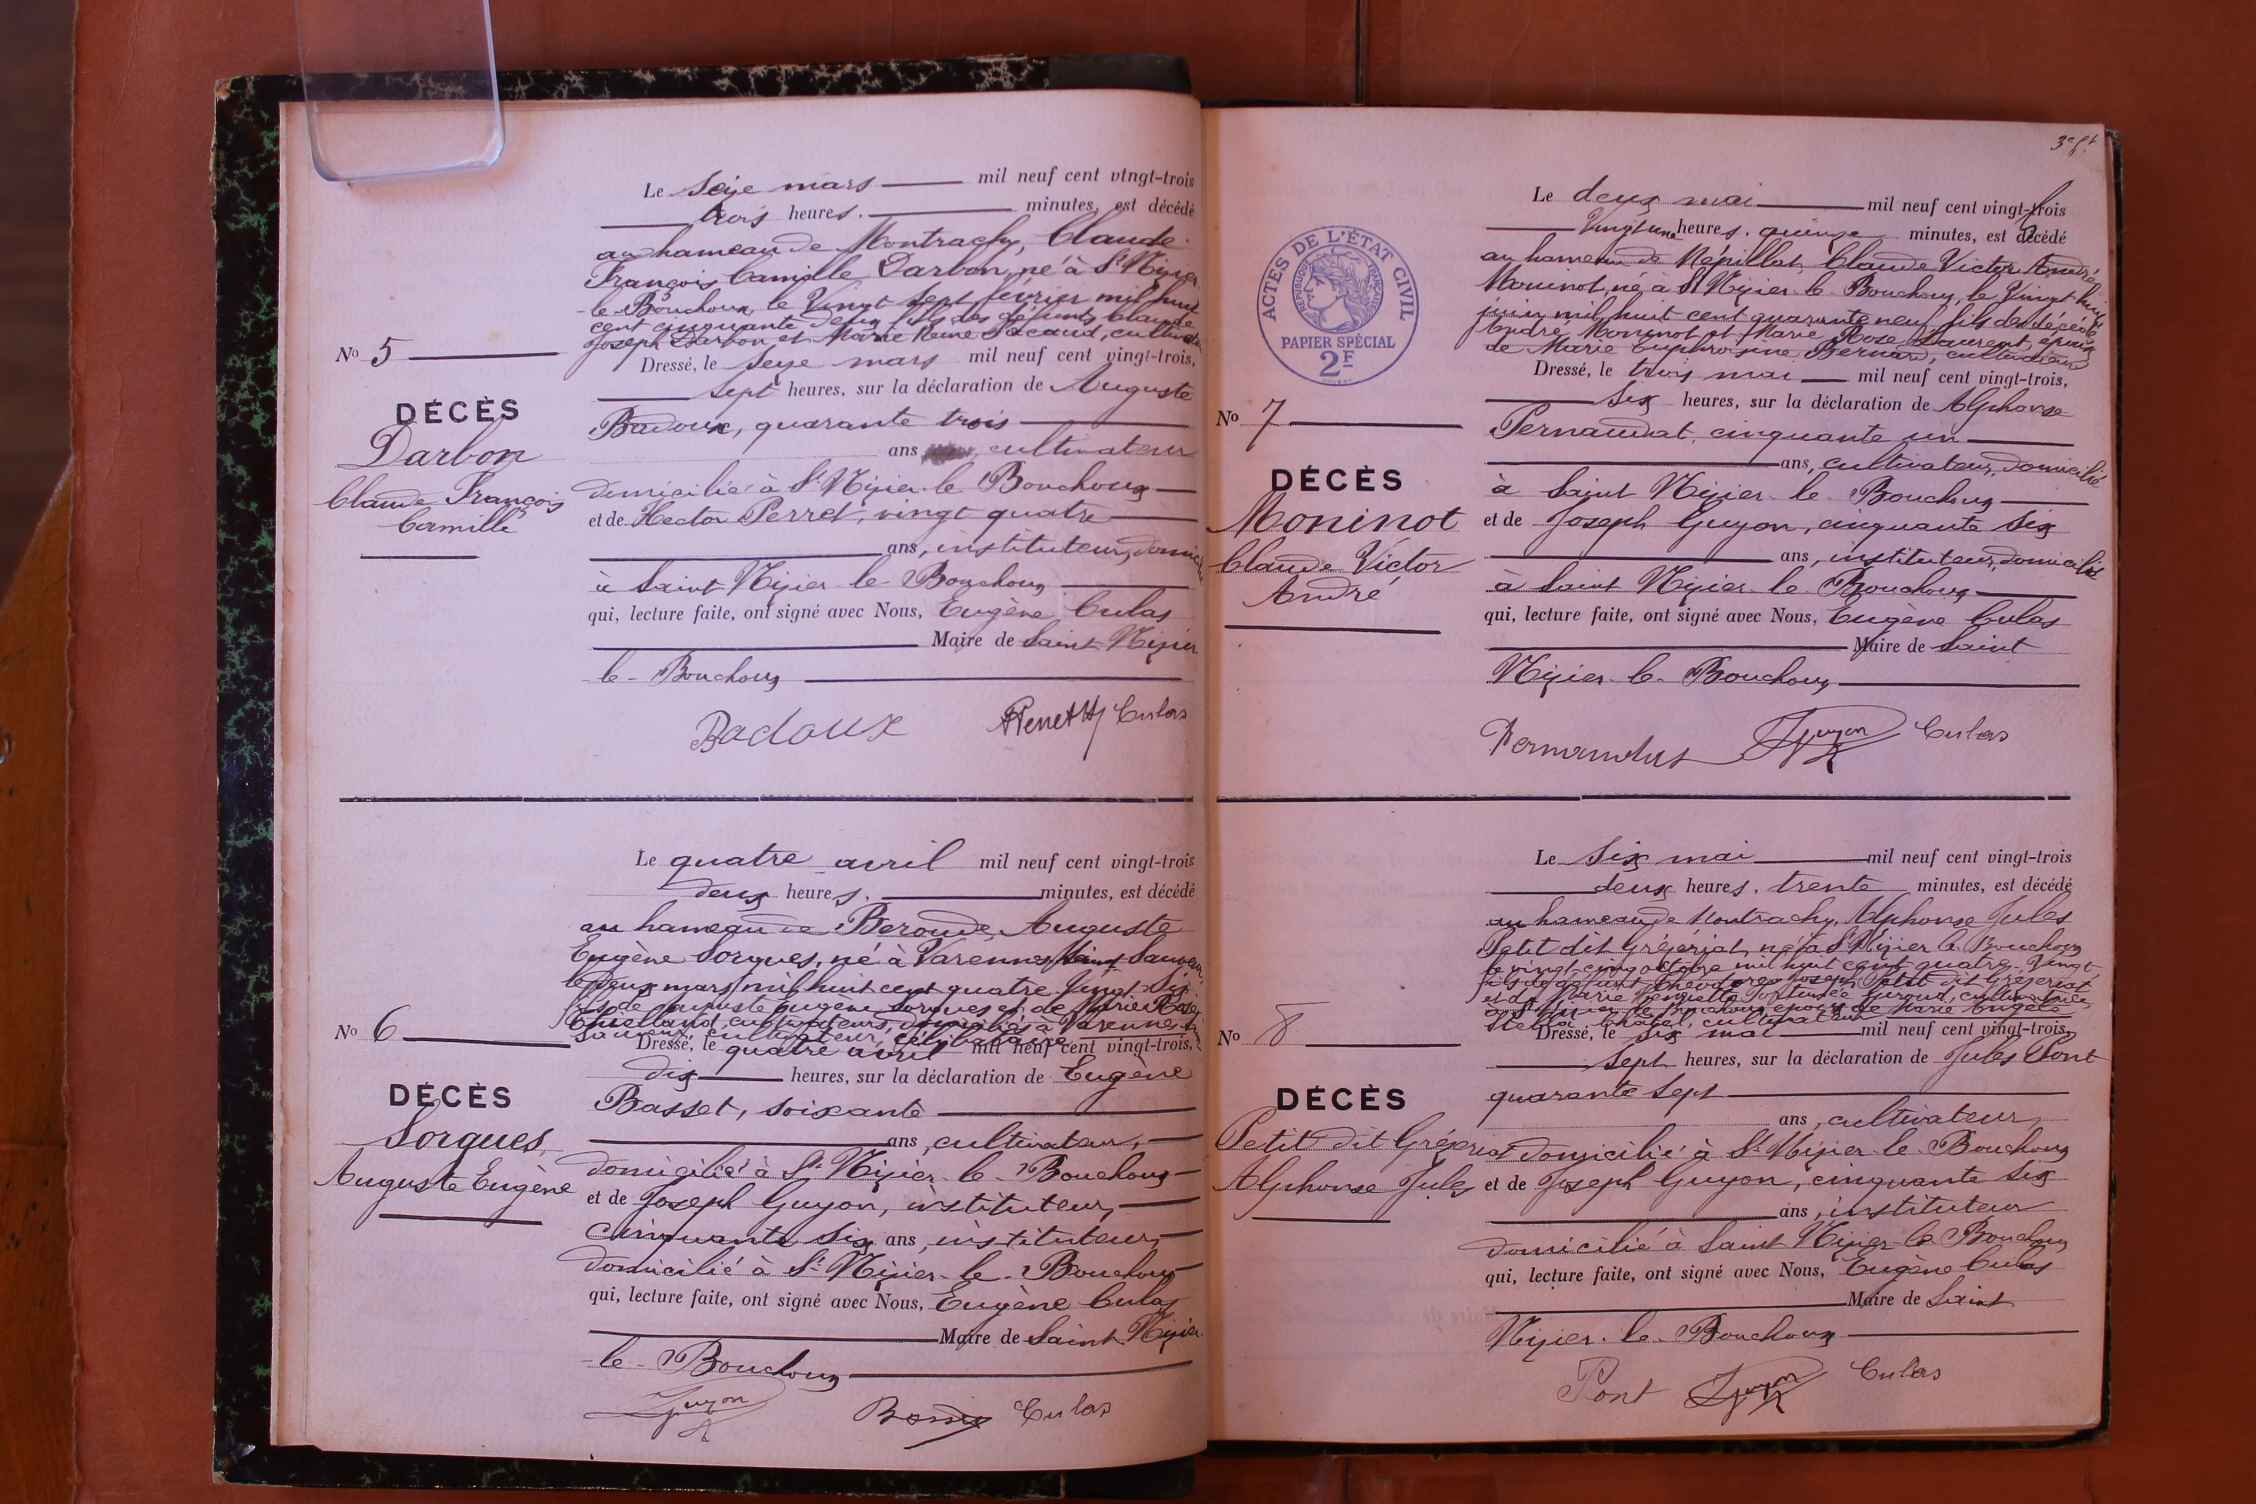 Le seize mars mil neuf cent vingt-trois
trois heures. minutes, est décédé
au hameau de Montrachy, Claude
François Camille Darbon, né à St Nizier
-le-Bouchoux, le Vingt sept février mil huit
cent cinquante deux, fils des défunts Claude
Joseph Darbon et Marie Reine Pacaud, cultivateur
No 5
Dressé, le seize mars mil neuf cent vingt-trois,
sept heures, sur la déclaration de Auguste
DÉCÈS
Darbon
Claude François
Camille
Badoux, quarante trois
ans, cultivateur
domicilié à St Nizier-le-Bouchoux
et de Hector Perret, vingt quatre
ans, instituteur, domicilié
à Saint Nizier-le-Bouchoux
qui, lecture faite, ont signé avec Nous, Eugène Culas
Maire de Saint Nizier
-le-Bouchoux
Badoux Culas
Le quatre avril mil neuf cent vingt-trois
deux heures. minutes, est décédé
au hameau de Beroude, Auguste
Eugène Sorgues, né à Varennes Saint Sauveur,
le deux mars mil huit cent quatre Vingt Six
fils de Auguste Eugène Sorgues et de Marie Rose
cultivateurs, domiciliés à Varennes St
Sauveur, cultivateur, célibataire
No 6
Dressé, le quatre avril mil neuf cent vingt-trois,
dix heures, sur la déclaration de Eugène
DÉCÈS
Sorgues,
Auguste Eugène
Basset, soixante
ans, cultivateur,
domicilié à St Nizier-le-Bouchoux
et de Joseph Guyon, instituteur,
cinquante six ans, instituteur,
domicilié à St Nizier-le-Bouchoux
qui, lecture faite, ont signé avec Nous, Eugène Culas
Maire de Saint Nizier
-le-Bouchoux
Guyon Culas
3e ft
ACTES DE L'ÉTAT CIVIL
RÉPUBLIQUE FRANÇAISE
PAPIER SPÉCIAL
2F
Le deux mai mil neuf cent vingt-trois
Vingt une heures. quinze minutes, est décédé
au hameau de Népillat, Claude Victor André
Moninot, né à St Nizier-le-Bouchoux, le Vingt huit
juin mil huit cent quarante neuf, fils des décédés
André Moninot et Marie Rose Laurent, époux
de Marie Euphrosine Bernard, cultivateur
Dressé, le trois mai mil neuf cent vingt-trois,
six heures, sur la déclaration de Alphonse
No 7
DÉCÈS
Moninot
Claude Victor
André
Pernaudat, cinquante un
ans, cultivateur, domicilié
à Saint Nizier-le-Bouchoux
et de Joseph Guyon, cinquante six
ans, instituteur, domicilié
à Saint Nizier-le-Bouchoux
qui, lecture faite, ont signé avec Nous, Eugène Culas
Maire de Saint
Nizier-le-Bouchoux
Guyon Culas
Le six mai mil neuf cent vingt-trois
deux heures. trente minutes, est décédé
au hameau de Montrachy, Alphonse Jules
Petit dit Grézériat, né à St Nizier le Bouchoux
le vingt-cinq octobre mil huit cent quatre-Vingt,
fils de défunt Joseph Petit dit Grézériat
et de Marie Giroud, cultivatrice
à St Nizier le Bouchoux, époux de Marie Angèle
Stella Chatel, cultivateur
No 8
Dressé, le six mai mil neuf cent vingt-trois,
sept heures, sur la déclaration de Jules Pont
DÉCÈS
Petit dit Grézériat
Alphonse Jules
quarante sept
ans, cultivateur,
domicilié à St Nizier-le-Bouchoux
et de Joseph Guyon, cinquante six
ans, instituteur
domicilié à Saint Nizier-le-Bouchoux
qui, lecture faite, ont signé avec Nous, Eugène Culas
Maire de Saint
Nizier-le-Bouchoux
Pont Guyon Culas